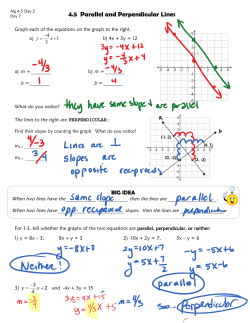 Alg 4.5 Day 2
Day 7
4.5 Parallel and Perpendicular Lines
Graph each of the equations on the graph to the right.
a) y = -4/3 x + 1 b) 4x + 3y = 12
3y = -4x + 12
y = -4/3 x + 4
a) m = -4/3 b) m = -4/3
b = 1 b = 4
What do you notice? they have same slope & are parallel
The lines to the right are PERPENDICULAR:
Find their slopes by counting the graph. What do you notice?
4/-3 Lines are ⊥
3/4 slopes are
opposite reciprocals
BIG IDEA
When two lines have the same slope, then the lines are parallel.
When two lines have opp. reciprocal slopes then the lines are perpendicular
For 1-3, tell whether the graphs of the two equations are parallel, perpendicular, or neither.
1) y = 8x - 3, 8x + y = 3 2) -10x + 2y = 7, 5x - y = 6
y = -8x + 3 2y = 10x + 7 -y = -5x + 6
Neither! y = 5x + 7/2 y = 5x - 6
Parallel
3) y = -3/4 x + 2 and -4x + 3y = 15
m = -3/4 3y = 4x + 15 m = 4/3 soo... Perpendicular
y = 4/3 x + 5